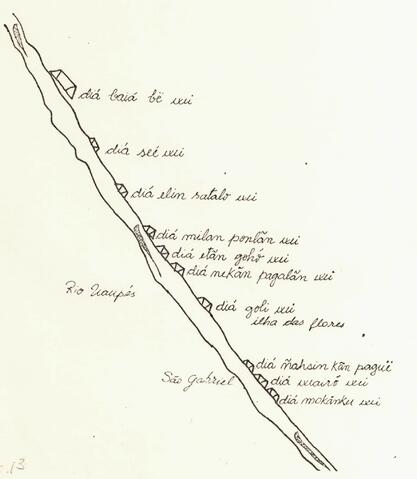 diá baiá bë wii
diá seé wii
diá elin satalo wii
diá milan ponlãn wii
diá etãn gohó wii
diá nekãn pagalãn wii
Rio Uaupés
diá goli wii
ilha das flores
diá ñahsin kãn paguë
São Gabriel
diá wiaró wii
diá mokánku wii
13